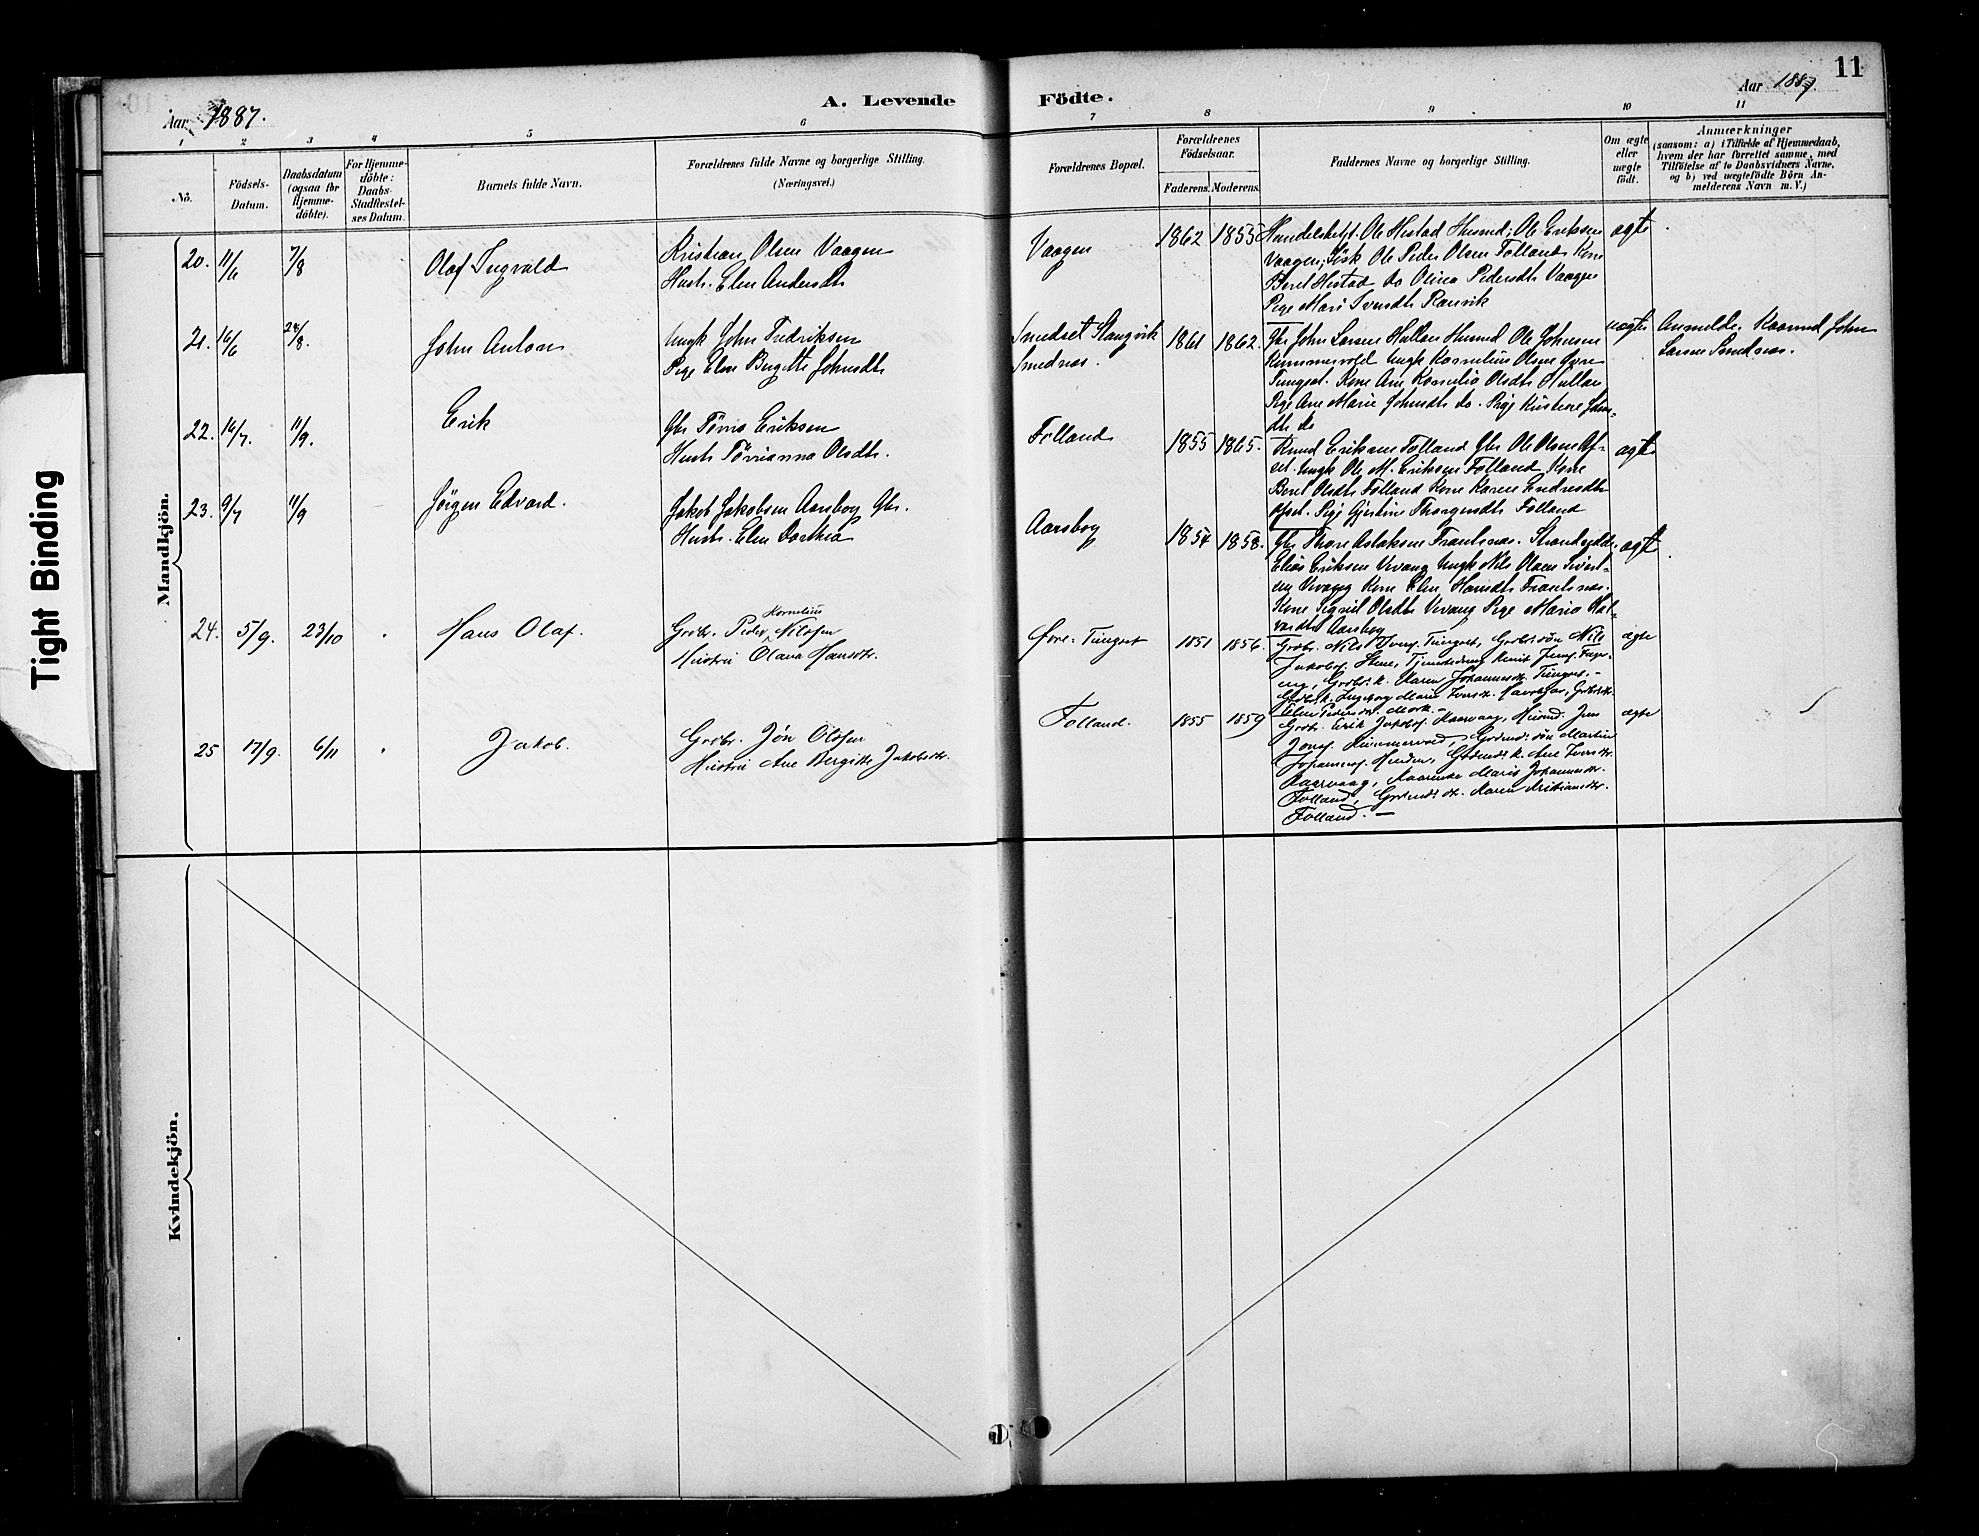 Tight Binding
Aar 1887.
A. Levende
Födte.
Aar 1887.
11
1 2 3 4 5 6 7 8 9 10 11
No.
Födsels-
Datum.
Daabsdatum
(ogsaa for
Hjemme-
döbte).
For Hjemme-
döbte:
Daabs-
Stadfæstel-
ses Datum.
Barnets fulde Navn.
Forældrenes fulde Navne og borgerlige Stilling.
(Næringsvei.)
Forældrenes Bopæl.
Forældrenes
Födselsaar.
Faderens. Moderens.
Faddernes Navne og borgerlige Stilling.
Om ægte
eller
uægte
födt.
Anmærkninger
(saasom: a) i Tilfælde af Hjemmedaab,
hvem der har forrettet samme, med
Tilföielse af to Daabsvidners Navne,
og b) ved uægtefödte Börn An-
melderens Navn m. V.)
Mandkjön.
20. 11/6 7/8 Olaf Ingvald
Kristian Olsen Vaagen
Hustr. Elen Andersdtr
Vaagen
1862 1855
Handelsbetj. Ole Hestad Husmd; Ole Eriksen
Vaagen; Fisk Ole Peder Olsen Folland Kone
Beret Hestad do Olina Pedersdtr Vaagen
Pige Mari Iversdtr Ranvik
ægte
21. 16/6 28/8. John Anton
Ungk John Fredriksen
Pige Elen Birgitte Johnsdtr
Smedset Stangvik
Smednæs.
1861 1862.
Gbr John Larsen Hullan Husmd Ole Johnsen
Rimmervold Ungk Kornelius Olsen Øvre
Tungset. Kone Ane Kornelia Olsdtr Hullan
Pige Ane Marie Johnsdtr do. Pige Kristine Johns-
dtr do
uægte
Anmelder. Husmd John
Larsen Smednæs.
22. 16/7. 11/9. Erik
Gbr Tørris Eriksen
Hustr Tørrianna Olsdtr.
Folland
1855 1865.
Knud Eriksen Folland Gbr Ole Olsen Of-
set. Ungk Ole M. Eriksen Folland Kone
Beret Olsdtr Folland Kone Karen Endresdtr
Ofset. Pige Gjertine Thorgersdtr Folland
ægte
23. 9/7 11/9 Jörgen Edvard.
Jakob Jakobsen Aarsbog Gbr.
Hustr. Elen Dorthea
Aarsbog
1854 1858.
Gbr Thore Aslaksen Frantsnæs. Strandsidder
Elias Eriksen Vevang Ungk Nils Olsen Sivert-
sen Vevang Kone Elen Hansdtr Frantsnæs.
Kone Sigrid Olsdtr Vevang Pige Maria Hal-
vardtr Aarsbog
ægte.
24. 5/9. 23/10 Hans Olaf.
Kornelius
Grdbr. Peder Nilssen
Hustru Olava Hansdtr.
Øvre-Tungset
1851 1856.
Grdbr. Nils Iversen Tungset, Grdbr.søn Nils
Jakobs. Stene, Tjenestedreng Knut Jens. Fager-
eng, Grdbr.k. Karen Johannesdtr. Tungset.-
Grdbr.k. Ingeborg Marie Iversdtr. Havnsfar, Grdbr.dtr.
Elen Pedersdtr. Mork.-
ægte
25 17/9. 6/11 Jakob.
Grdbr. Jön Olssen
Hustru Ane Bergitte Jakobsdtr.
Folland.
1855 1859
Grdbr. Erik Jakobs. Kaarvaag, Husmd. Jens
Jons. Rimmervold, Grdmds.søn Martin
Johannes. Henden, Grdmds.k. Ane Iversdtr.
Kaarvaag, Kaarenke Maria Johannesdtr.
Folland, Grdmds.dtr. Karen Kristiansdtr.
Folland.-
ægte
Kvindekjön.